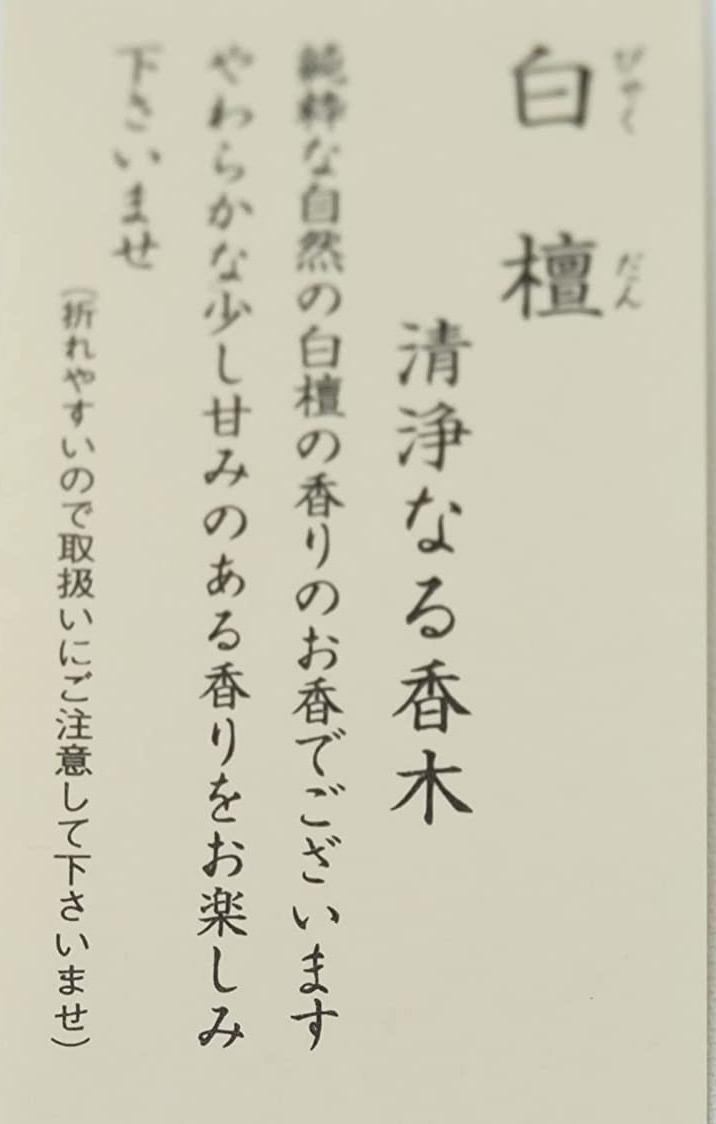 白檀
びゃくだん
清浄なる香木
純粋な自然の白檀の香りのお香でございます
やわらかな少し甘みのある香りをお楽しみ
下さいませ
(折れやすいので取扱いにご注意して下さいませ)